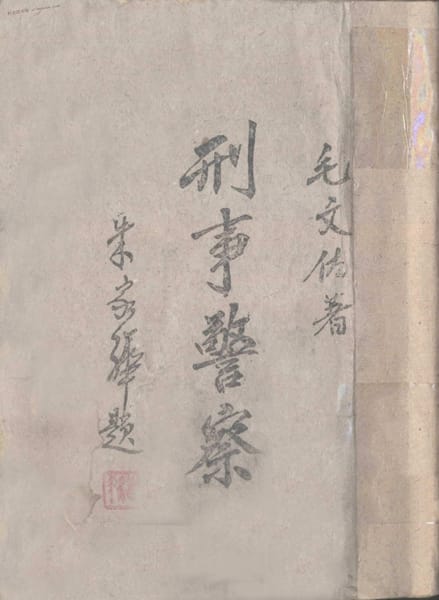 毛文佐著
刑事警察
朱家驊題